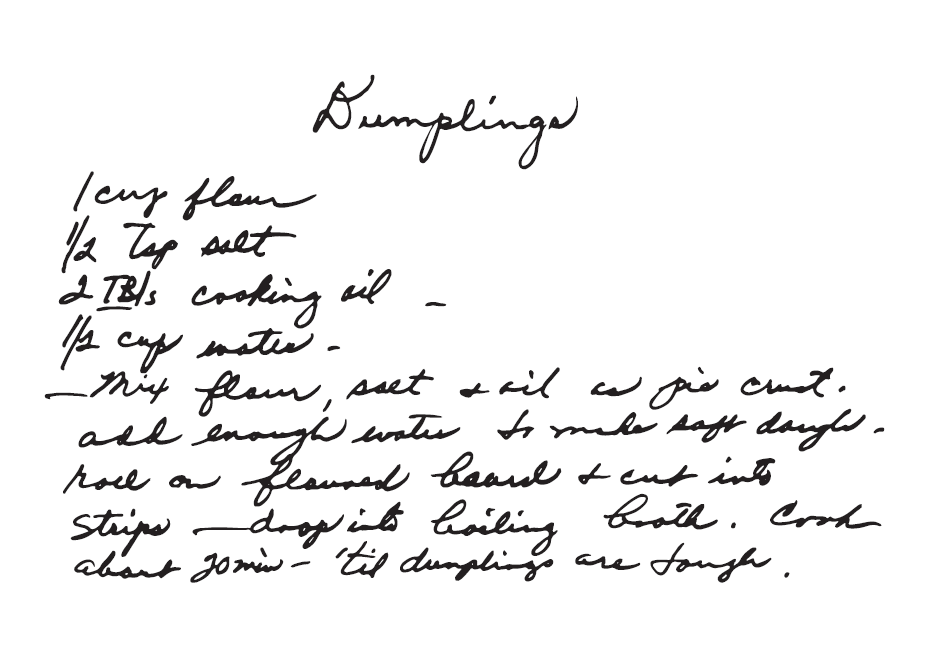 Dumplings
1 cup flour
1/2 Tsp salt
2 TBls cooking oil -
1/2 cup water -
- Mix flour, salt & oil as pie crust.
add enough water to make soft dough.
roll on floured board & cut into
strips - drop into boiling broth. Cook
about 20 min - 'til dumplings are tough.